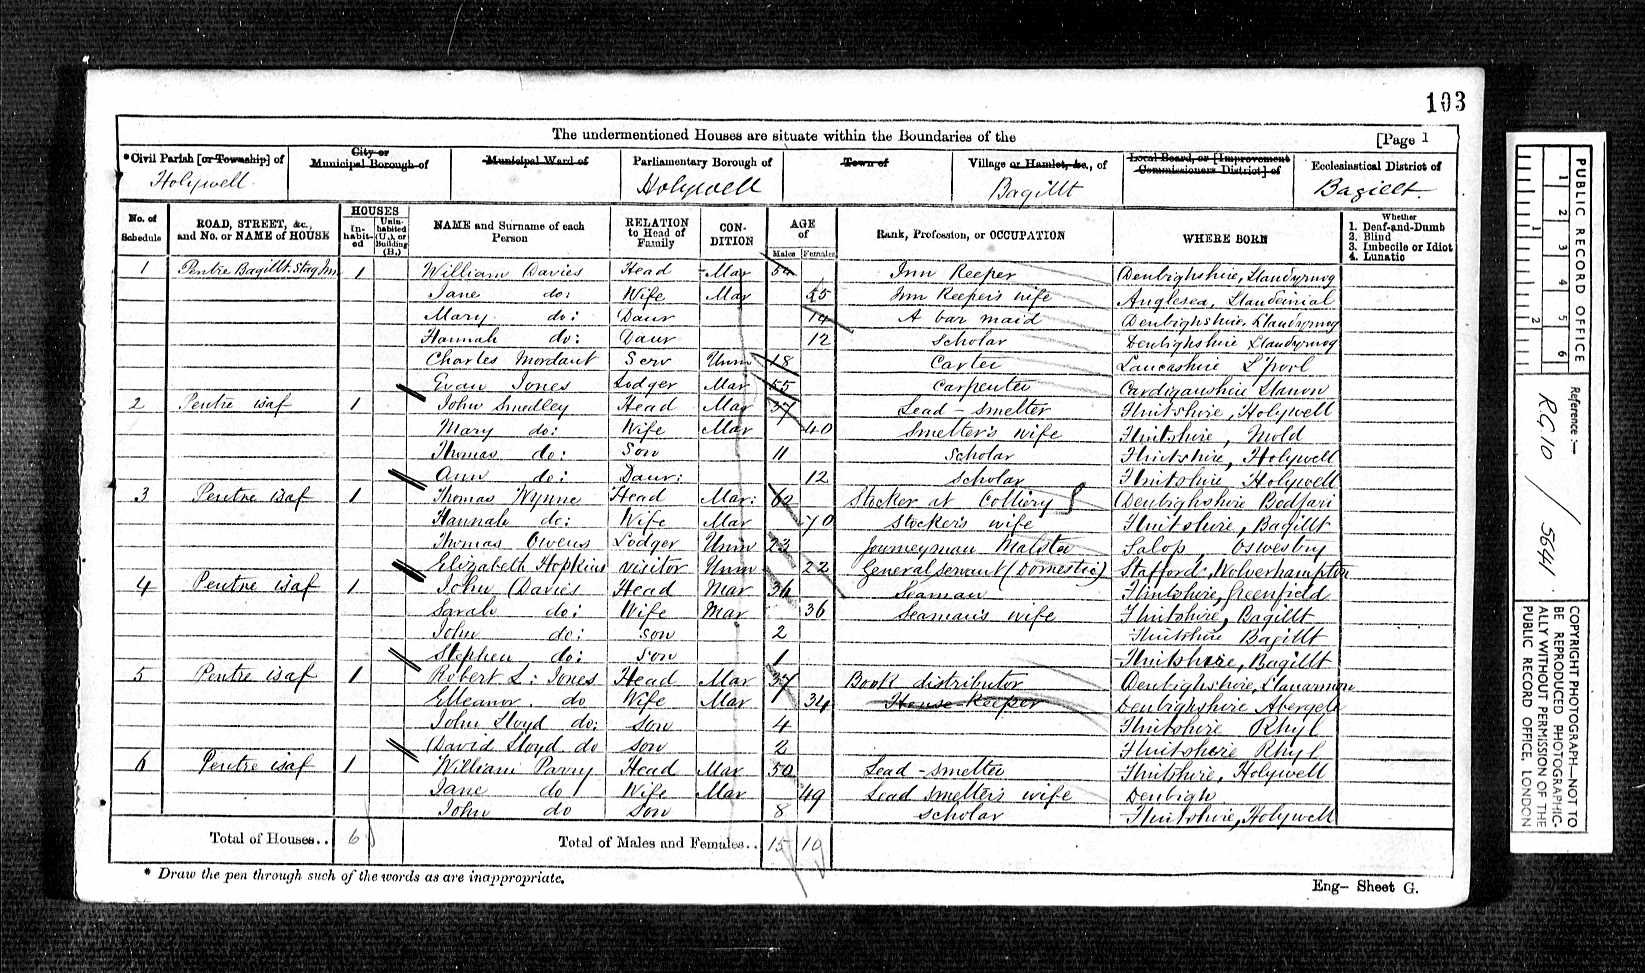 103
The undermentioned Houses are situate within the Boundaries of the [Page 1
*Civil Parish [or Township] of City or Municipal Borough of Municipal Ward of Parliamentary Borough of Town of Village or Hamlet, &c., of Local Board, or [Improvement Commissioners District] of Ecclesiastical District of
Holywell Holywell Bagillt Bagillt.
No. of Schedule ROAD, STREET, &c., and No. or NAME of HOUSE HOUSES In-habit-ed Unin-habited (U.), or Building (B.) NAME and Surname of each Person RELATION to Head of Family CON-DITION AGE of Males Females Rank, Profession, or OCCUPATION WHERE BORN Whether 1. Deaf-and-Dumb 2. Blind 3. Imbecile or Idiot 4. Lunatic
1 Pentre Bagillt. Stag Inn 1 William Davies Head Mar 54 Inn Keeper Denbighshire, Llandyrnog
Jane do: Wife Mar 55 Inn Keeper's wife Anglesea,
Mary do: Daur 14 A bar maid Denbighshire. Llandyrnog
Hannah do: Daur 12 Scholar Denbighshire Llandyrnog
Charles Mordaunt Serv Unm 18 Carter Lancashire L'pool
Evan Jones Lodger Mar 55 Carpenter Cardiganshire Llanon
2 Pentre isaf 1 John Smedley Head Mar 37 Lead-smelter Flintshire, Holywell
Mary do: Wife Mar 40 Smelter's wife Flintshire, Mold
Thomas do: Son 11 Scholar Flintshire, Holywell
Ann do: Daur: 12 Scholar Flintshire, Holywell
3 Pentre isaf 1 Thomas Wynne Head Mar: 62 Stoker at Colliery Denbighshire Bodfari
Hannah do: Wife Mar 70 Stoker's wife Flintshire, Bagillt
Thomas Owens Lodger Unm 23 Journeyman Malster Salop Oswestry
Elizabeth Hopkins visitor Unm 22 General servant (Domestic) Stafford, Wolverhampton
4 Pentre isaf 1 John Davies Head Mar 36 Seaman Flintshire, Greenfield
Sarah do: Wife Mar 36 Seaman's wife Flintshire, Bagillt
John do: son 2 Flintshire Bagillt
Stephen do: son 1 Flintshire, Bagillt
5 Pentre isaf 1 Robert L: Jones Head Mar 37 Book distributor Denbighshire, Llanarmon
Elleanor. do Wife Mar 34 House-Keeper Denbighshire Abergele
John Lloyd do: Son 4 Flintshire Rhyl
David Lloyd do son 2 Flintshire Rhyl
6 Pentre isaf 1 William Parry Head Mar 50 Lead-smelter Flintshire, Holywell
Jane do Wife Mar 49 Lead smelter's wife Denbigh
John do Son 8 Scholar Flintshire, Holywell
Total of Houses.. 6 Total of Males and Females.. 15 10
* Draw the pen through such of the words as are inappropriate.
Eng- Sheet G.
PUBLIC RECORD OFFICE
1 2 3 4 5 6
1 2
Reference:-
RG 10 / 5641
COPYRIGHT PHOTOGRAPH-NOT TO
BE REPRODUCED PHOTOGRAPHIC-
ALLY WITHOUT PERMISSION OF THE
PUBLIC RECORD OFFICE, LONDON